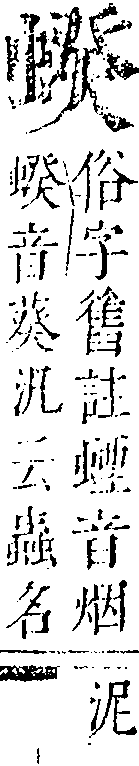 俗字舊註音烟
音葵汎云蟲名
泥